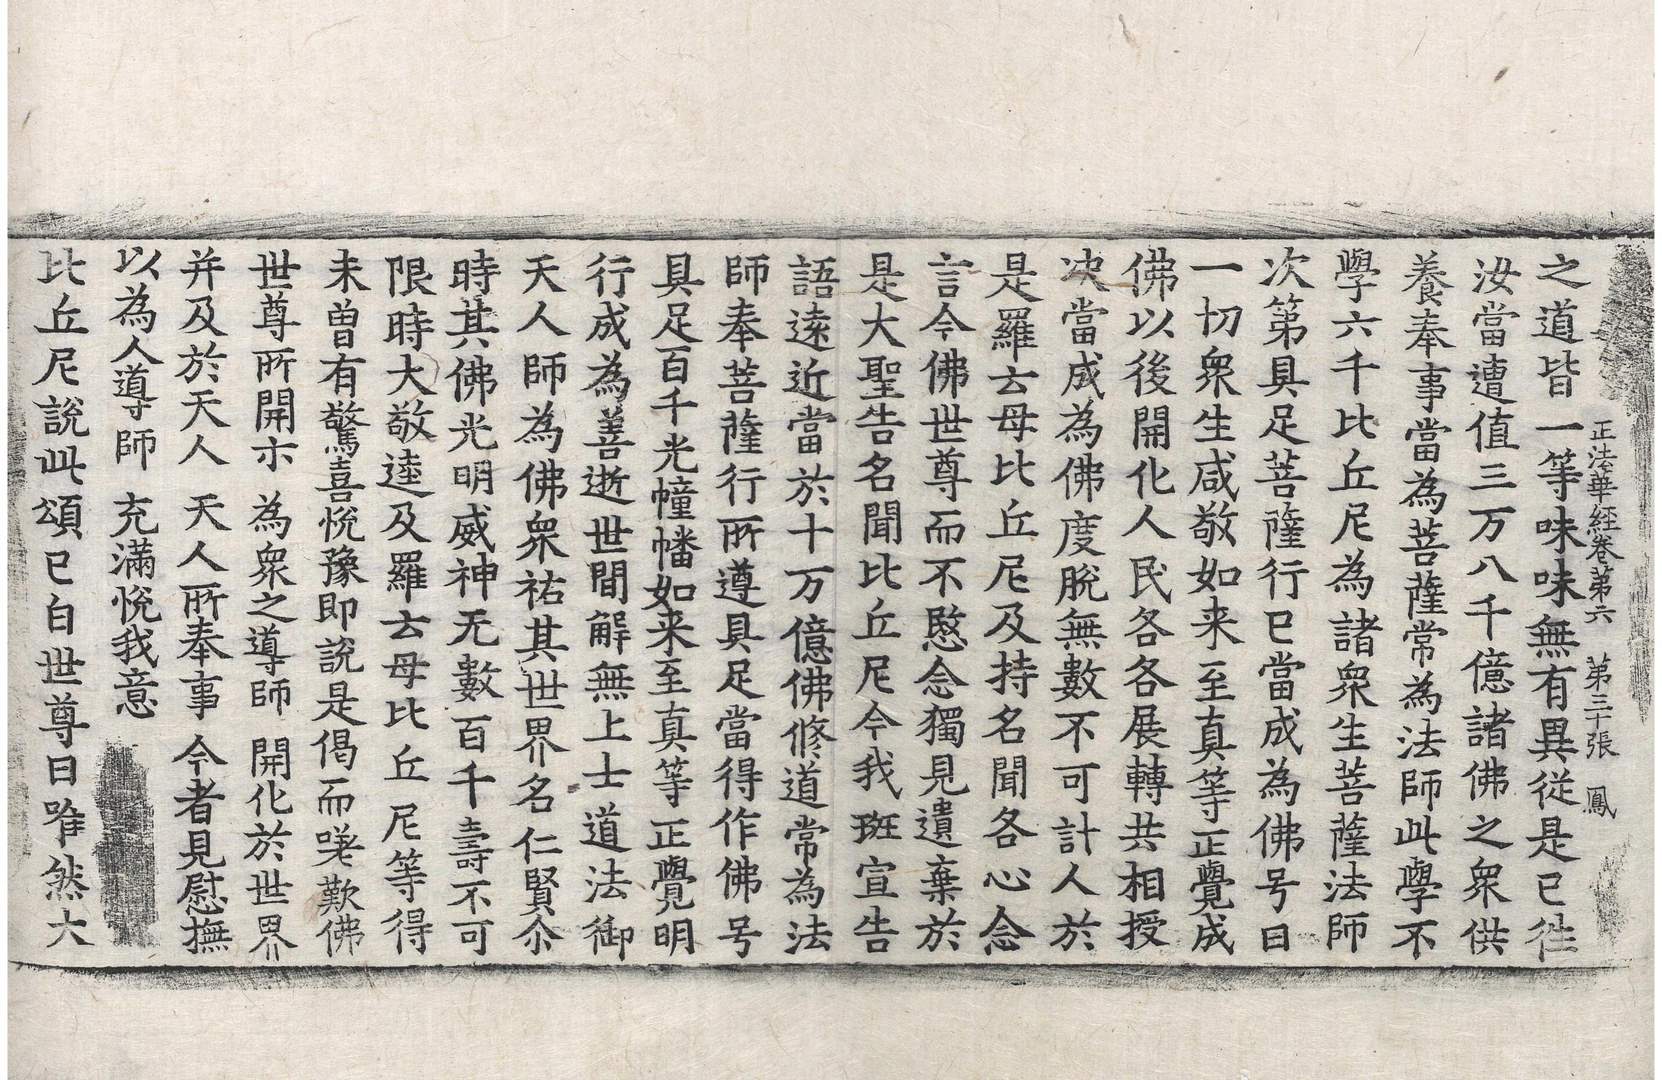 正法華經卷第六 第三十張 鳳
之道皆一等味味無有異從是已徃
汝當遭值三万八千億諸佛之衆供
養奉事當為菩薩常為法師此學不
學六千比丘尼為諸衆生菩薩法師
次第具足菩薩行已當成為佛号曰
一切衆生咸敬如来至真等正覺成
佛以後開化人民各各展轉共相授
决當成為佛度脫無數不可計人於
是羅云母比丘尼及持名聞各心念
言今佛世尊而不愍念獨見遺棄於
是大聖告名聞比丘尼今我班宣告
語遠近當於十万億佛修道常為法
師奉菩薩行所遵具足當得作佛号
具足百千光幢幡如来至真等正覺明
行成為善逝世間解無上士道法御
天人師為佛衆祐其世界名仁賢尒
時其佛光明威神无數百千壽不可
限時大敬逵及羅云母比丘尼等得
未曾有驚喜悅豫即說是偈而嗟歎佛
世尊所開示 為衆之導師 開化於世界
并及於天人 天人所奉事 今者見慰撫
以為人導師 充滿悅我意
比丘尼說此頌已白世尊曰唯然大